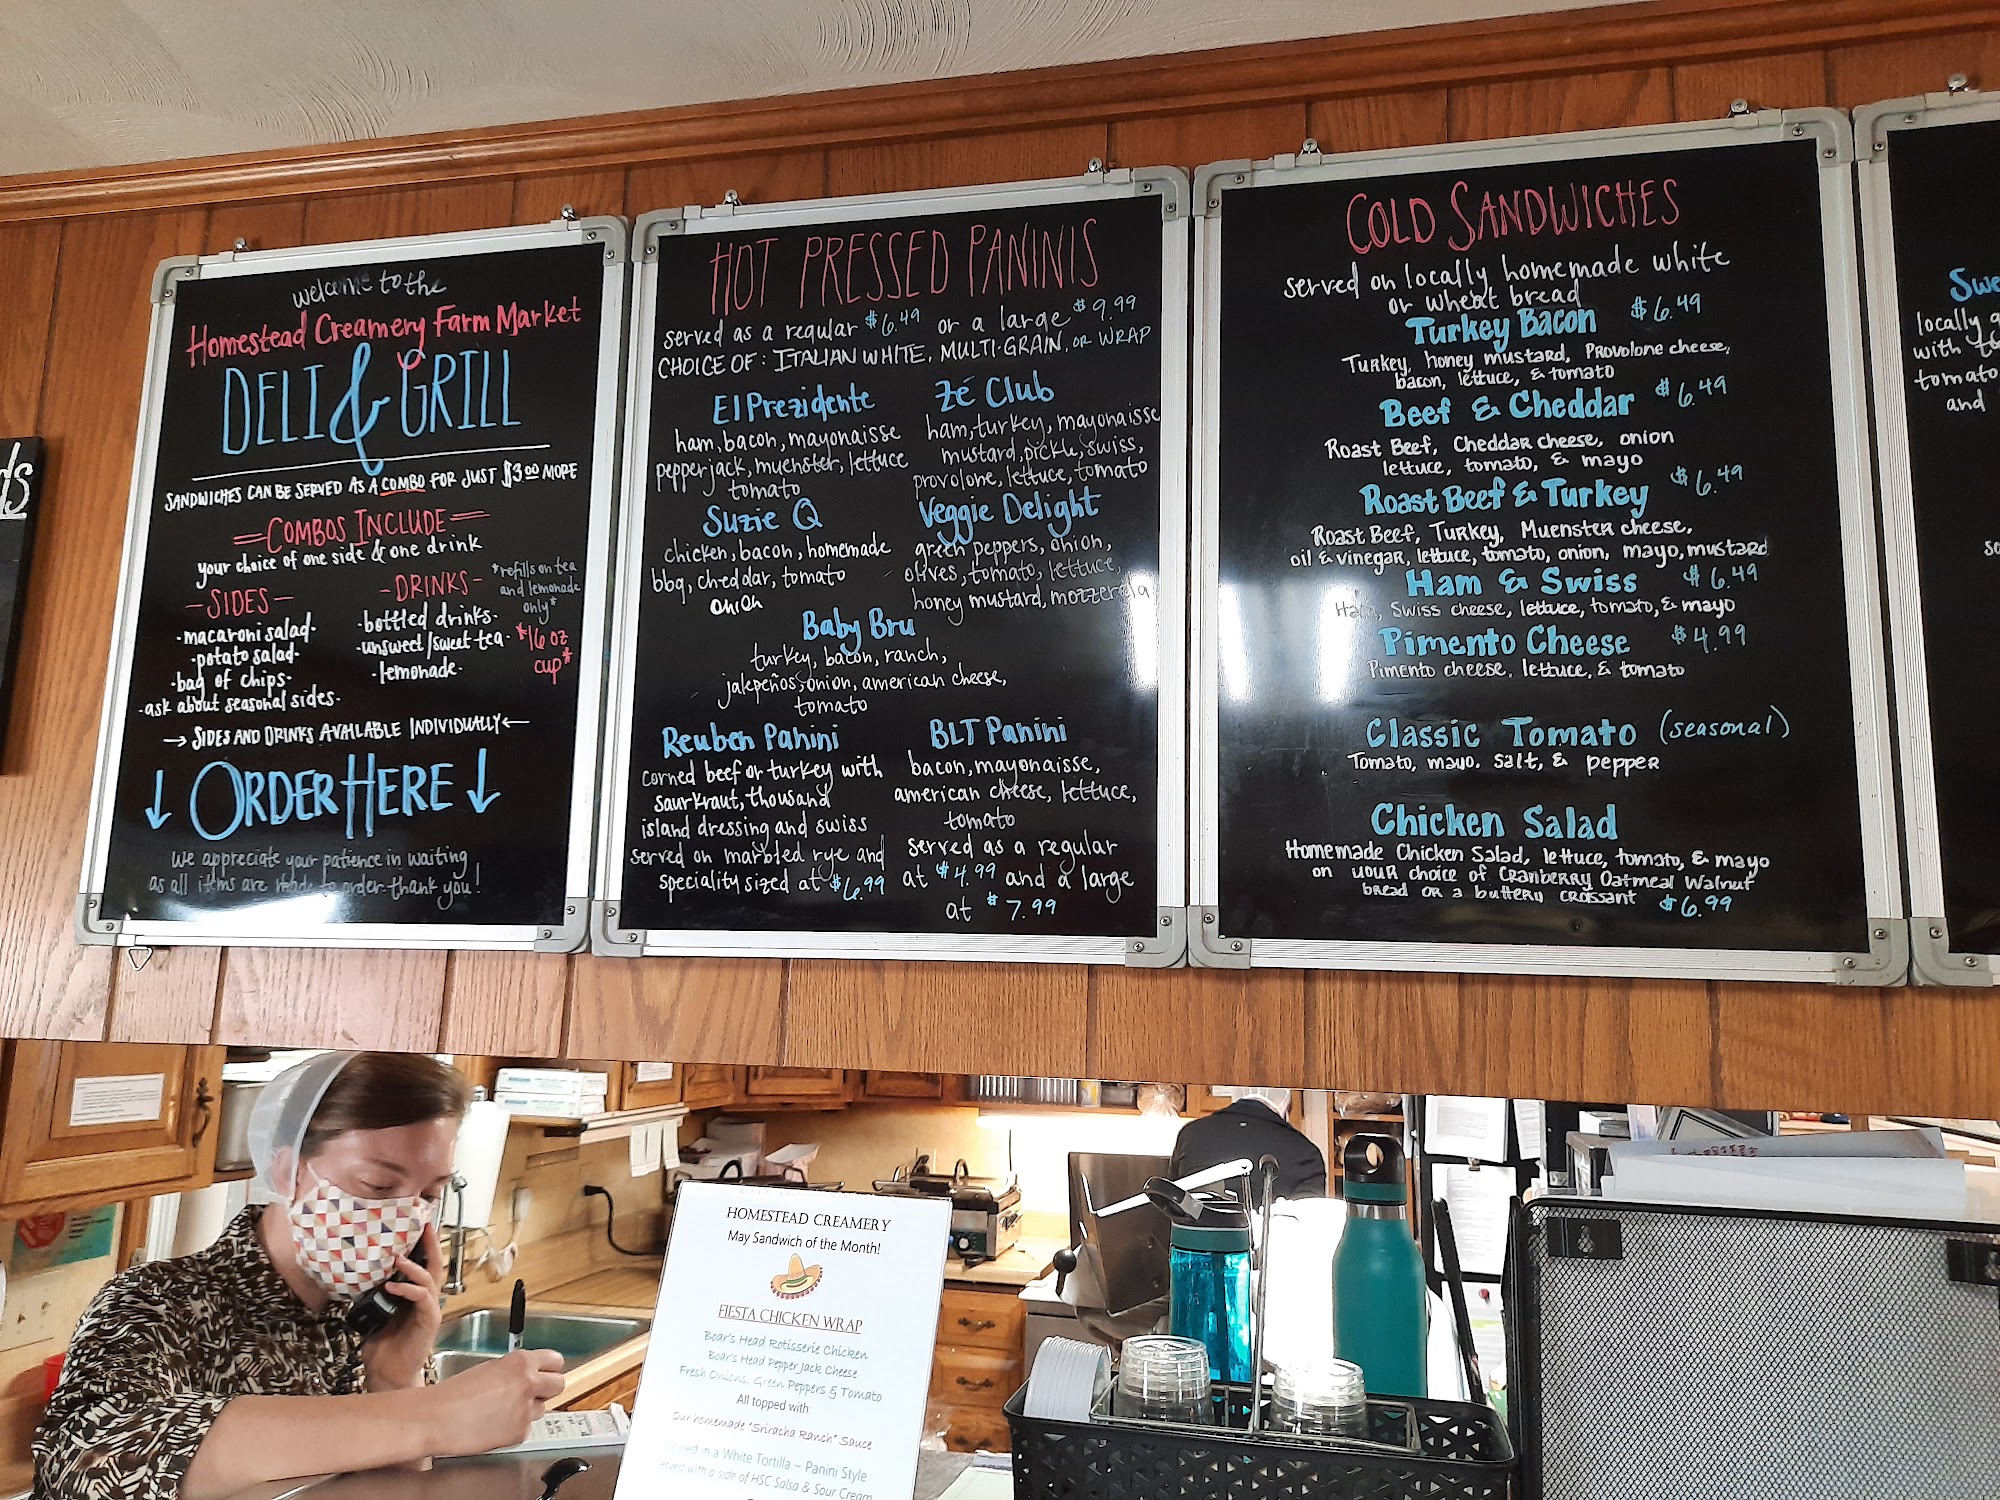 ds
welcome to the
Homestead Creamery Farm Market
DELI & GRILL
SANDWICHES CAN BE SERVED AS A COMBO FOR JUST $3.00 MORE
COMBOS INCLUDE
your choice of one side & one drink
-SIDES-
-macaroni salad-
-potato salad-
-bag of chips-
-ask about seasonal sides-
-DRINKS-
-bottled drinks-
-unsweet/sweet tea-
-lemonade-
*refills on tea
and lemonade
only*
*16 oz
cup*
→ SIDES AND DRINKS AVAILABLE INDIVIDUALLY ←
↓ ORDER HERE ↓
We appreciate your patience in waiting
as all items are made to order thank you!
HOT PRESSED PANINIS
served as a regular $6.49 or a large $9.99
CHOICE OF: ITALIAN WHITE, MULTI-GRAIN, OR WRAP
El Prezidente
ham, bacon, mayonaisse
pepperjack, muenster, lettuce
tomato
Zé Club
ham, turkey, mayonaisse
mustard, pickle, swiss,
provolone, lettuce, tomato
Suzie Q
chicken, bacon, homemade
bbq, cheddar, tomato
onion
Veggie Delight
green peppers, onion,
olives, tomato, lettuce,
honey mustard, mozzerella
Baby Bru
turkey, bacon, ranch,
jalepeños, onion, american cheese,
tomato
Reuben Panini
corned beef or turkey with
saurkraut, thousand
island dressing and swiss
served on marbled rye and
speciality sized at $6.99
BLT Panini
bacon, mayonaisse,
american cheese, lettuce,
tomato
served as a regular
at $4.99 and a large
at $7.99
COLD SANDWICHES
served on locally homemade white
or wheat bread
Turkey Bacon $6.49
Turkey, honey mustard, Provolone cheese,
bacon, lettuce, & tomato
Beef & Cheddar $6.49
Roast Beef, Cheddar cheese, onion
lettuce, tomato, & mayo
Roast Beef & Turkey $6.49
Roast Beef, Turkey, Muenster cheese,
oil & vinegar, lettuce, tomato, onion, mayo, mustard
Ham & Swiss $6.49
Ham, Swiss cheese, lettuce, tomato, & mayo
Pimento Cheese $4.99
Pimento cheese, lettuce, & tomato
Classic Tomato (seasonal)
Tomato, mayo, salt, & pepper
Chicken Salad
Homemade Chicken Salad, lettuce, tomato, & mayo
on your choice of Cranberry Oatmeal Walnut
bread or a buttery croissant $6.99
Swe
locally
with
tomato
and
so
HOMESTEAD CREAMERY
May Sandwich of the Month!
FIESTA CHICKEN WRAP
Boar's Head Rotisserie Chicken
Boar's Head Pepper Jack Cheese
Fresh Onions, Green Peppers & Tomato
All topped with
Our homemade "Sriracha Ranch" Sauce
Served in a White Tortilla ~ Panini Style
Served with a side of HSC Salsa & Sour Cream